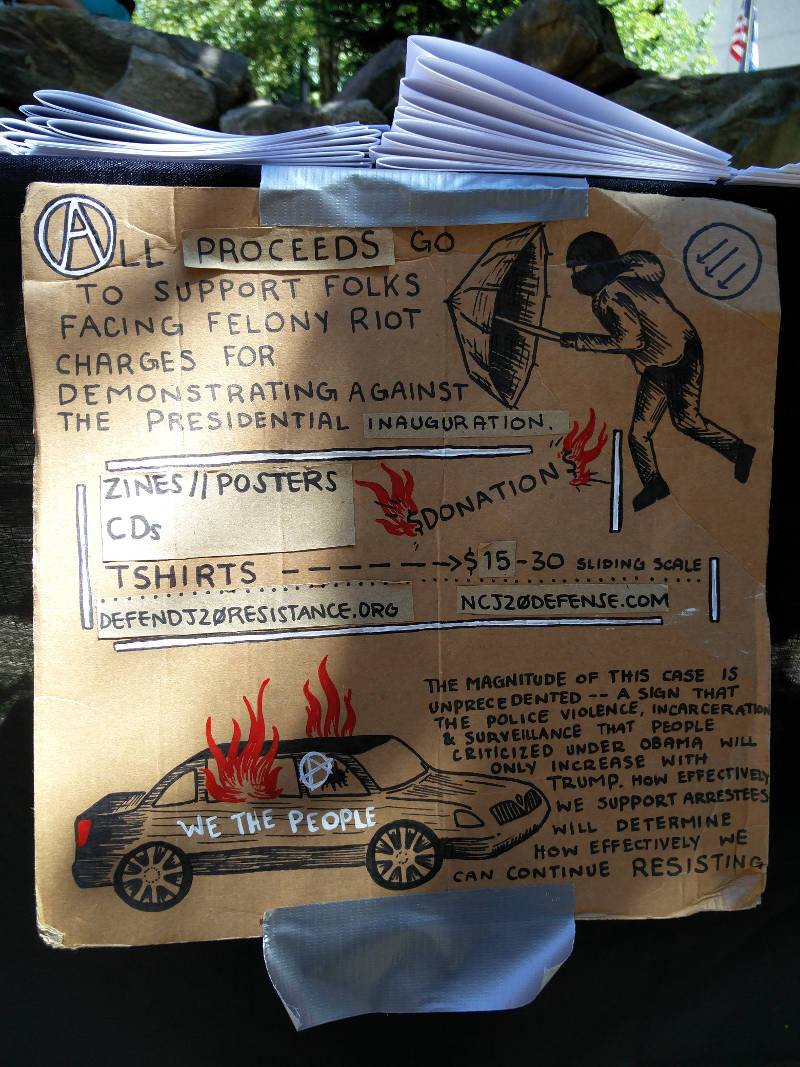 ALL PROCEEDS GO
TO SUPPORT FOLKS
FACING FELONY RIOT
CHARGES FOR
DEMONSTRATING AGAINST
THE PRESIDENTIAL INAUGURATION.
ZINES // POSTERS
CDs
DONATION
TSHIRTS -------> $15-30 SLIDING SCALE
DEFENDJ20RESISTANCE.ORG
NCJ20DEFENSE.COM
THE MAGNITUDE OF THIS CASE IS
UNPRECEDENTED -- A SIGN THAT
THE POLICE VIOLENCE, INCARCERATION
& SURVEILLANCE THAT PEOPLE
CRITICIZED UNDER OBAMA WILL
ONLY INCREASE WITH
TRUMP. HOW EFFECTIVELY
WE SUPPORT ARRESTEES
WILL DETERMINE
HOW EFFECTIVELY WE
CAN CONTINUE RESISTING
A
WE THE PEOPLE